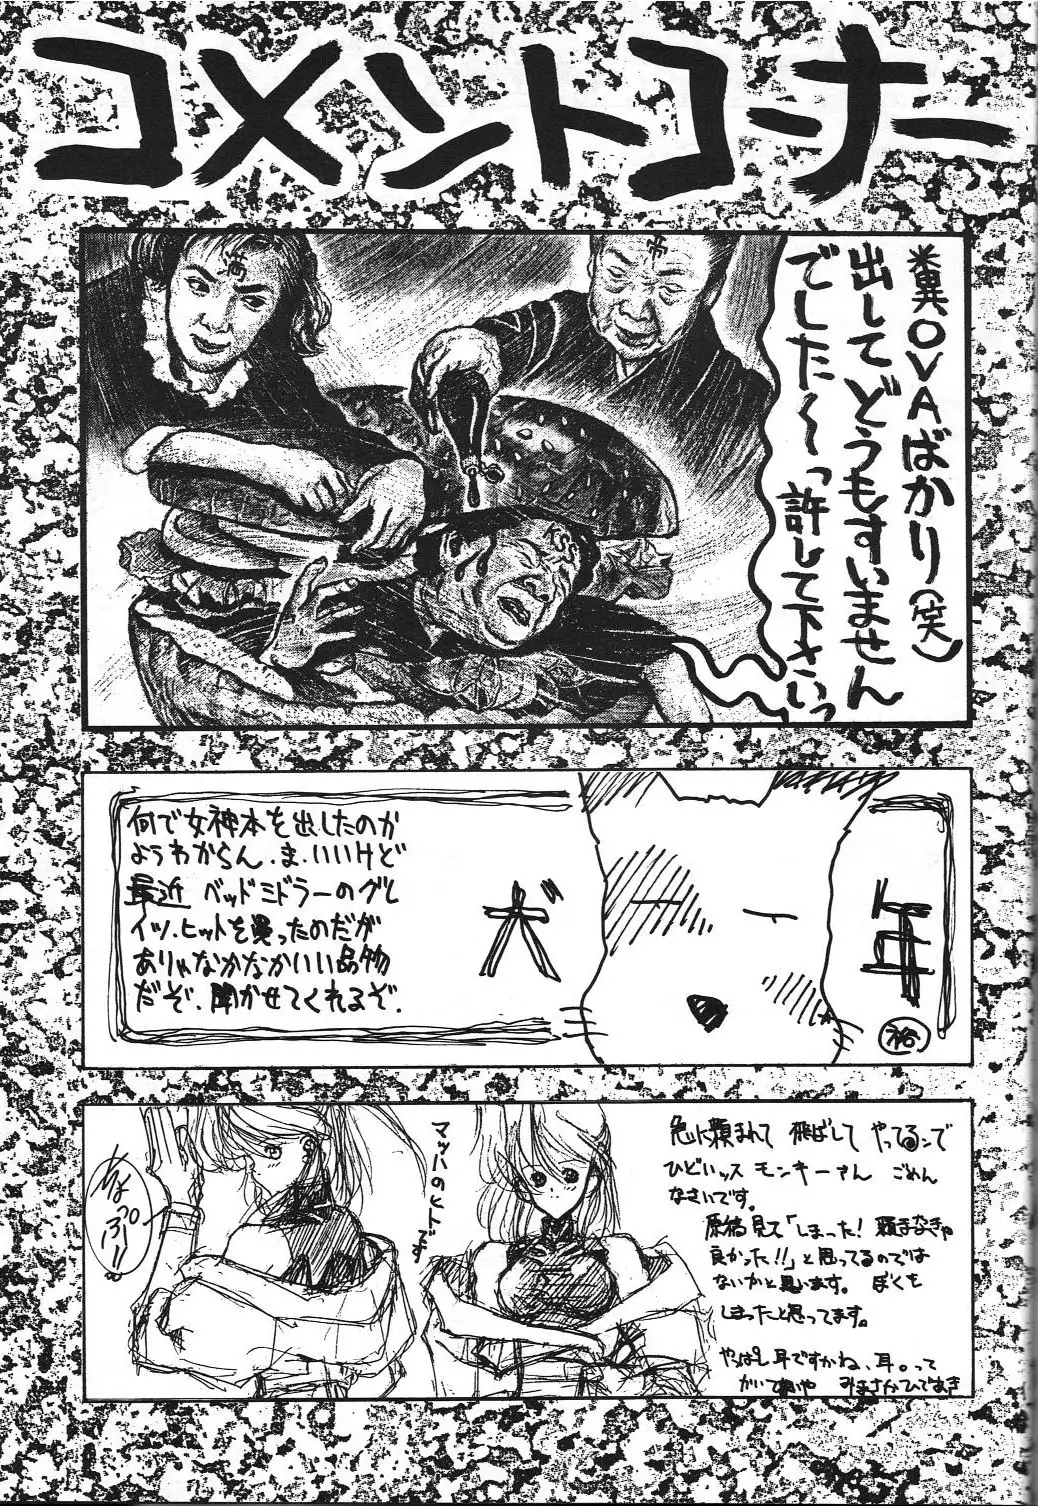 コメントコーナー
糞OVAばかり(笑)
出してどうもすいません
でした〜〜っ許して下さいっ
KSS
何で女神本を出したのか
ようわからん.ま.いいけど
最近 ベッドミドラーのグレ
イツ.ヒットを買ったのだが
ありゃなかなかいい品物
だぞ.聞かせてくれるぞ.
マッハのヒトです
急に頼まれて 飛ばして やってるンで
ひどいッス モンキーさん ごめん
なさいです。
原稿見て「しまった! 頼まなきゃ
良かった!!」と思ってるのでは
ないかと思います。 ぼくも
しまったと思ってます。
やっぱし耳ですかね、耳。って